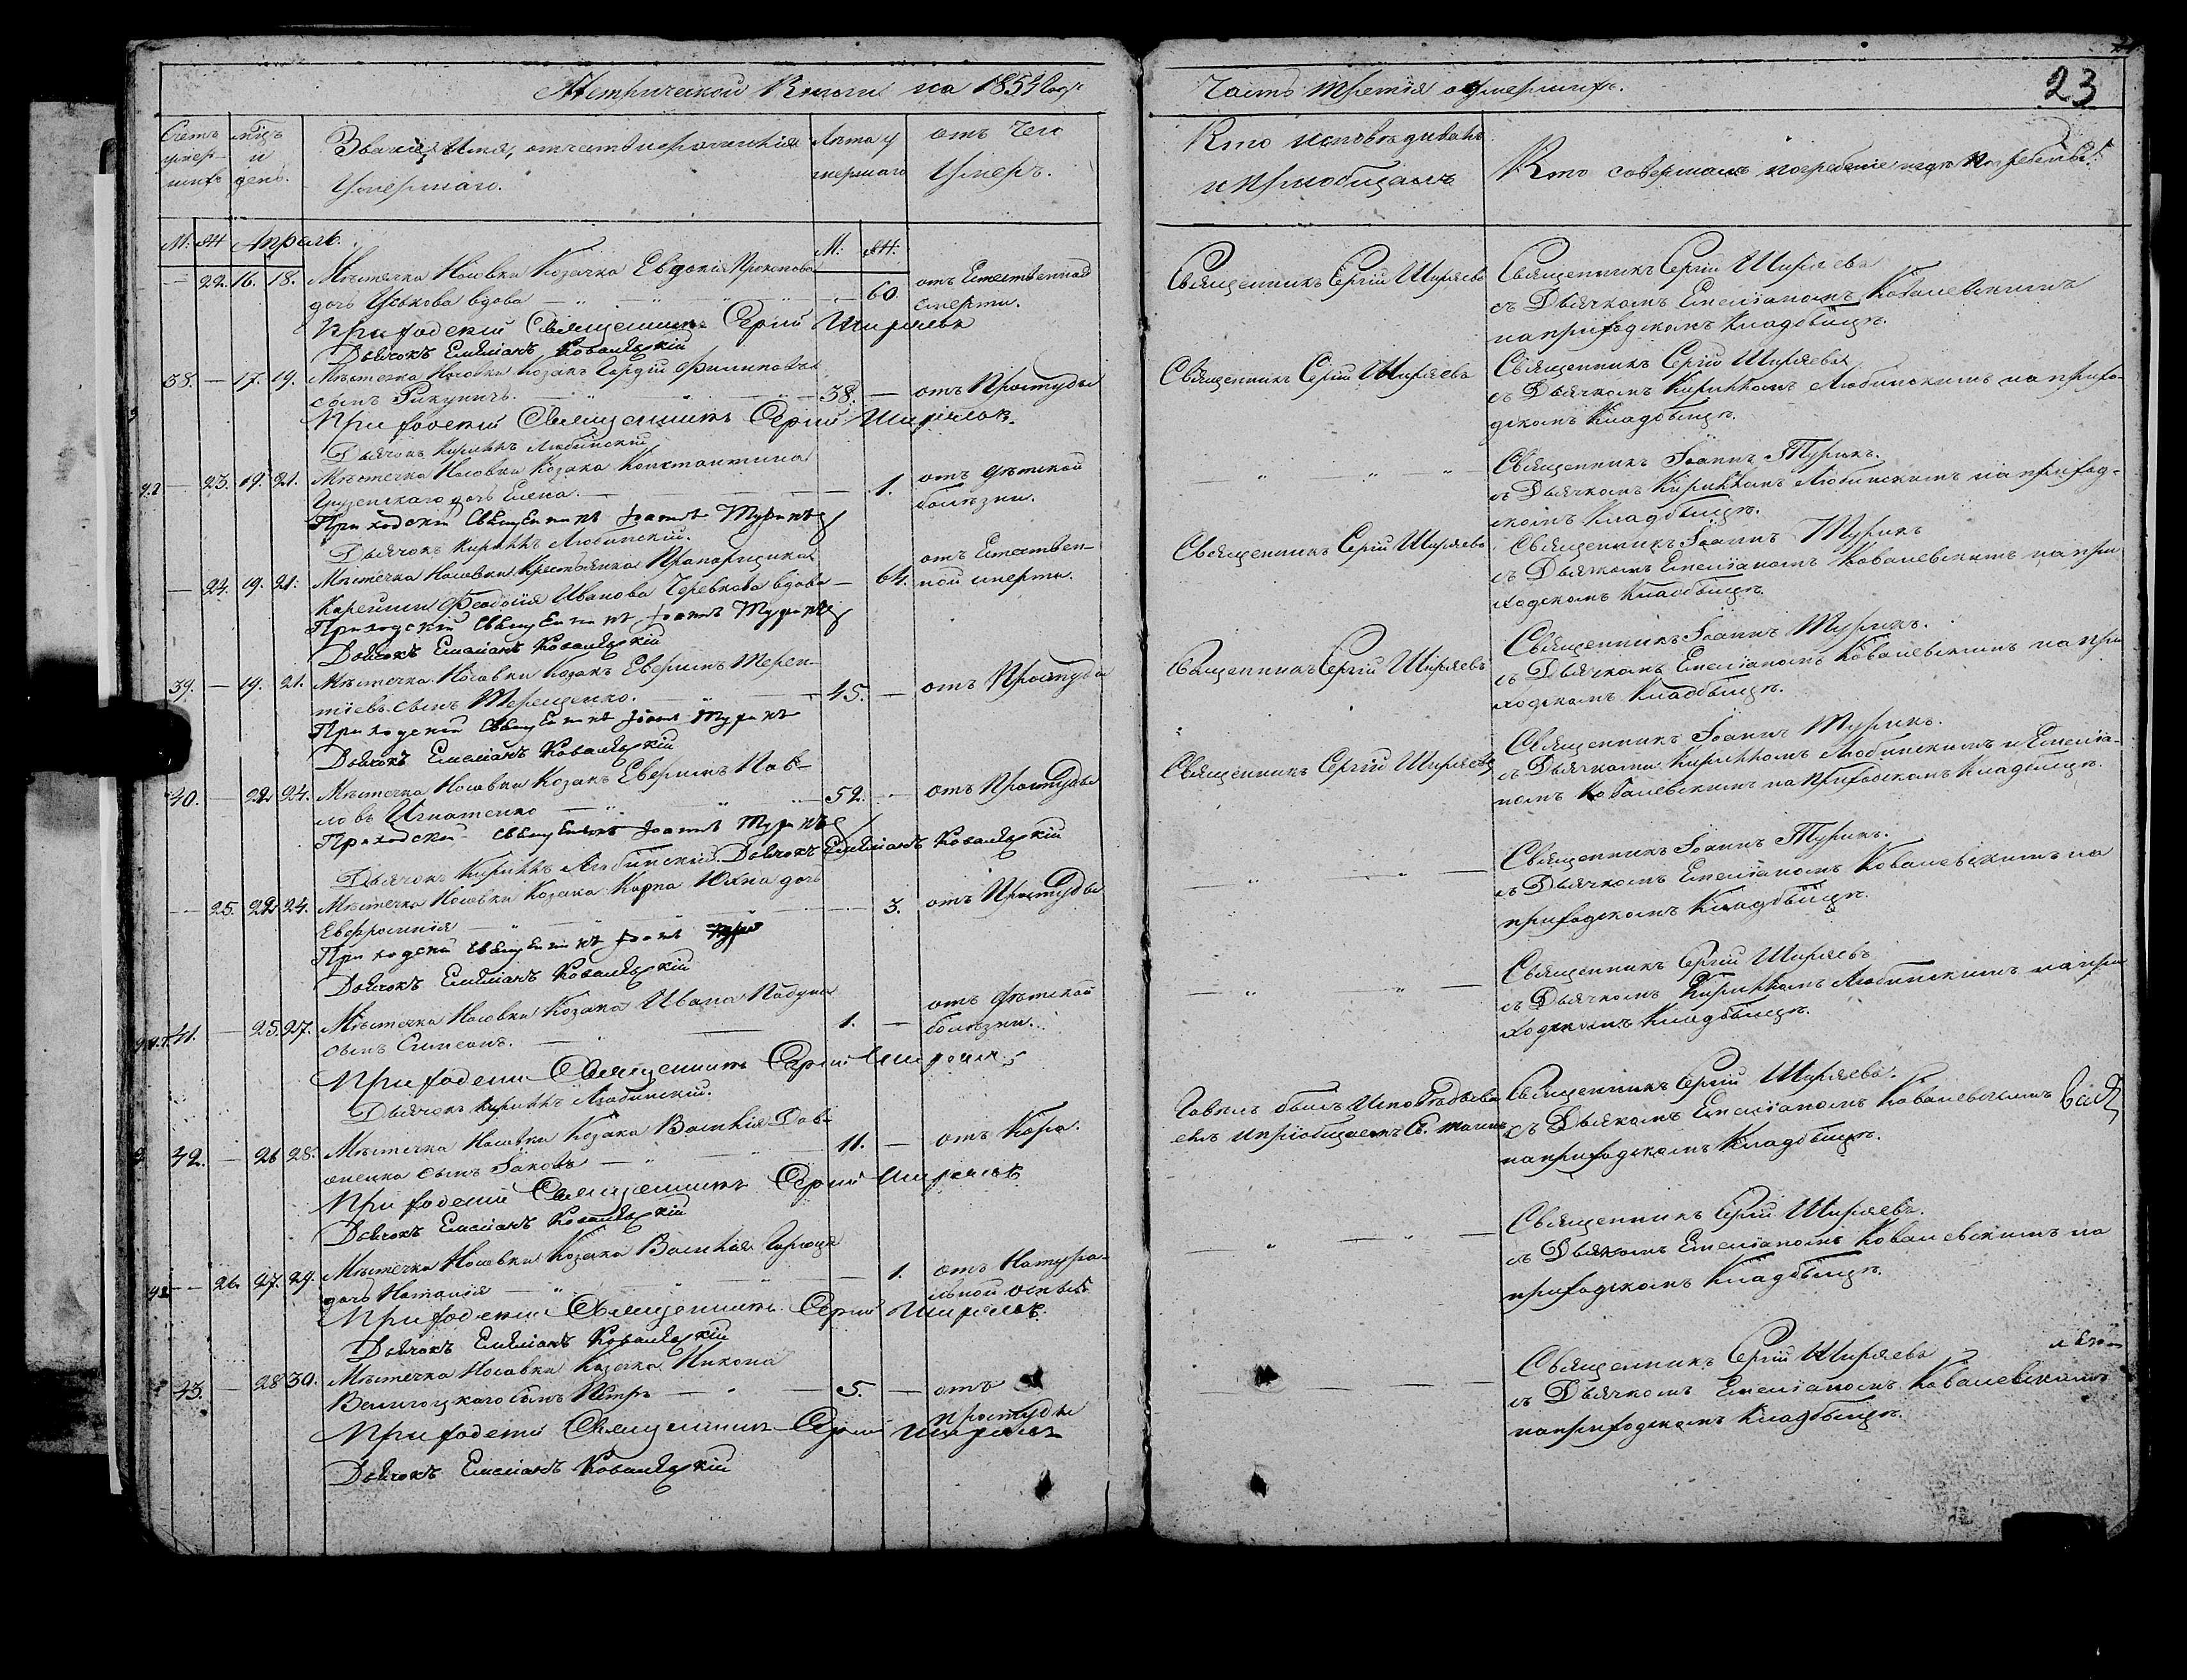 Метрической Книги на 1854 Годъ
Часть третія о умершихъ.
23
Счетъ умер-шихъ
мцъ и день.
Званіе, Имя, отчество и фамилія Умершаго.
Лѣта умершаго
отъ чего Умеръ.
Кто исповѣдывалъ и пріобщалъ
Кто совершалъ погребеніе и гдѣ погребены.
М: Ж: Апрѣль. М: Ж:
— 22. 16. 18. Мѣстечка Носовки Козачка Евдокія Прокопова
дочь Уськова вдова — 60. отъ Естественной смерти.
Священникъ Сергій Ширяевъ
Священникъ Сергій Ширяевъ
съ Дьячкомъ Емеліаномъ Ковалевскимъ
на приходскомъ Кладбищѣ.
Приходскій Священникъ Сергій Ширяевъ
Дьячокъ Емеліанъ Ковалевскій
38. — 17. 19. Мѣстечка Носовки Козакъ Гордій Филиповъ
сынъ 38. — отъ Простуды
Священникъ Сергій Ширяевъ
Священникъ Сергій Ширяевъ
съ Дьячкомъ Кирилломъ Любинскимъ на прихо-
дскомъ Кладбищѣ.
Приходскій Священникъ Сергій Ширяевъ
Дьячокъ Кириллъ Любинскій
— 23. 19. 21. Мѣстечка Носовки Козака Константина
дочь Елена. — 1. отъ дѣтской болѣзни.
Священникъ Іоаннъ Турикъ.
съ Дьячкомъ Кирилломъ Любинскимъ на приход-
скомъ Кладбищѣ.
Приходскій Священникъ Іоаннъ Турикъ
Дьячокъ Кириллъ Любинскій.
— 24. 19. 21. Мѣстечка Носовки Крестьянка Прапорщика
Феодосія Иванова вдова — 64. отъ Естествен-ной смерти.
Священникъ Сергій Ширяевъ
Священникъ Іоаннъ Турикъ
съ Дьячкомъ Емеліаномъ Ковалевскимъ на при
ходскомъ Кладбищѣ.
Приходскій Священникъ Іоаннъ Турикъ
Дьячокъ Емеліанъ Ковалевскій
39. — 19. 21. Мѣстечка Носовки Козакъ Терен-
тіевъ сынъ Терещенко. — 45. — отъ Простуды
Священникъ Сергій Ширяевъ
Священникъ Іоаннъ Турикъ.
съ Дьячкомъ Емеліаномъ Ковалевскимъ на при
ходскомъ Кладбищѣ.
Приходскій Священникъ Іоаннъ Турикъ
Дьячокъ Емеліанъ Ковалевскій
40. — 22. 24. Мѣстечка Носовки Козакъ Пав-
ловъ Игнатенко — 52. — отъ Простуды
Священникъ Сергій Ширяевъ
Священникъ Іоаннъ Турикъ.
съ Дьячками Кирилломъ Любинскимъ и Емеліа-
номъ Ковалевскимъ на Приходскомъ Кладбищѣ.
Приходскій Священникъ Іоаннъ Турикъ
Дьячокъ Кириллъ Любинскій. Дьячокъ Емеліанъ Ковалевскій
— 25. 22. 24. Мѣстечка Носовки Козака Карпа Юхна дочь
Евфросинія — 3. отъ Простуды
Священникъ Іоаннъ Турикъ.
съ Дьячкомъ Емеліаномъ Ковалевскимъ на
приходскомъ Кладбищѣ.
Приходскій Священникъ Іоаннъ Турикъ
Дьячокъ Емеліанъ Ковалевскій
41. — 25. 27. Мѣстечка Носовки Козака Ивана
сынъ Симеонъ. — 1. — отъ дѣтской болѣзни.
Священникъ Сергій Ширяевъ
съ Дьячкомъ Кирилломъ Любинскимъ на при
ходскомъ Кладбищѣ.
Приходскій Священникъ Сергій Ширяевъ
Дьячокъ Кириллъ Любинскій.
42. — 26 28. Мѣстечка Носовки Козака Василія
сынъ Іаковъ — 11. — отъ Кора.
и пріобщаемъ Св. таинъ
Священникъ Сергій Ширяевъ.
съ Дьячкомъ Емеліаномъ Ковалевскимъ
на приходскомъ Кладбищѣ.
Приходскій Священникъ Сергій Ширяевъ
Дьячокъ Емеліанъ Ковалевскій
— 26. 27. 29. Мѣстечка Носовки Козака Василія
дочь Наталія — 1. отъ Натура-льной оспы
Священникъ Сергій Ширяевъ.
съ Дьячкомъ Емеліаномъ Ковалевскимъ на
приходскомъ Кладбищѣ.
Приходскій Священникъ Сергій Ширяевъ
Дьячокъ Емеліанъ Ковалевскій
43. — 28 30. Мѣстечка Носовки Козака Никона
сынъ Петръ — 5. — отъ простуды
Священникъ Сергій Ширяевъ
съ Дьячкомъ Емеліаномъ Ковалевскимъ
на приходскомъ Кладбищѣ.
Приходскій Священникъ Сергій Ширяевъ
Дьячокъ Емеліанъ Ковалевскій